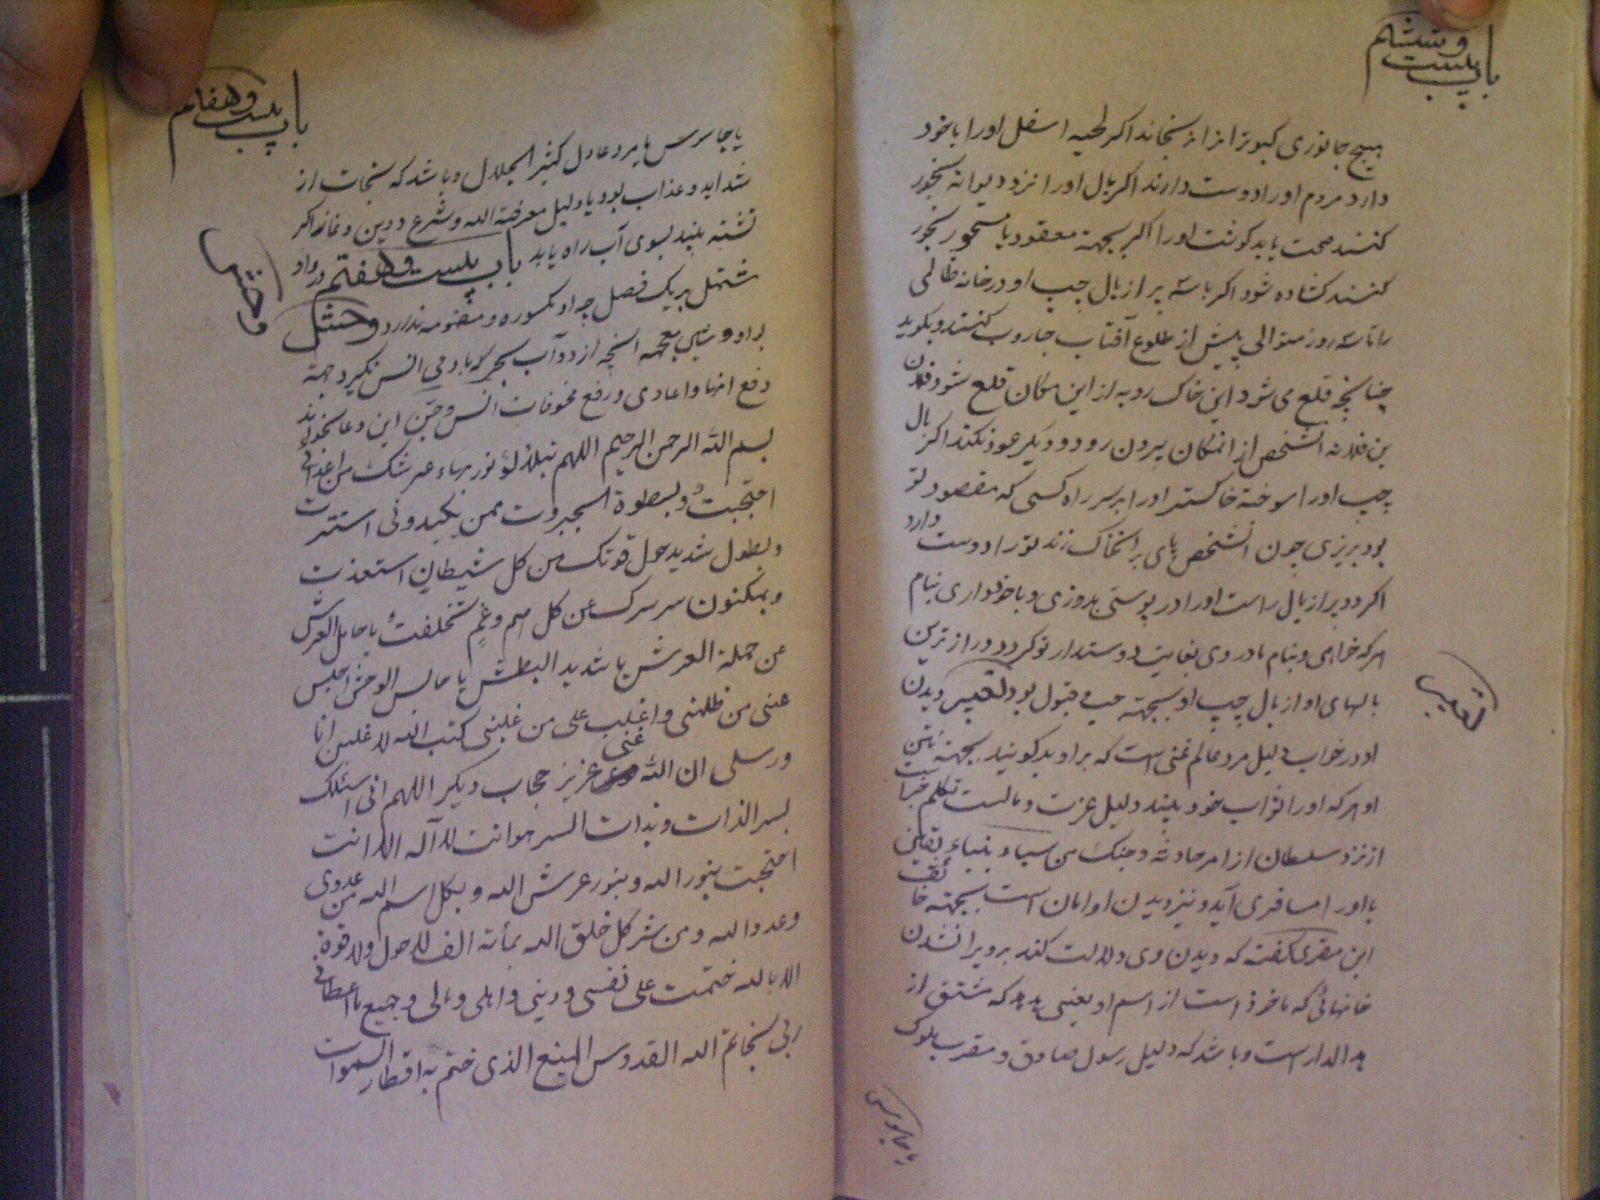 باب بیست و ششم
هیچ جانوری کبوتر را نرنجاند اکر لحیه اسفل اورا باخود
دارد مردم اورا دوست دارند اکر بال اورا نزد دیوانه بخور
کنند صحت یابد کوشت اورا اکر بجهة معقود یا مسحور بخور
کنند کشاده شود اکر با سه پر از بال چپ او در خانه ظالمی
را تا سه روز متوالی پیش از طلوع آفتاب جاروب کنند و بکوید
چنانچه قلع می شود این خاک روبه از این مکان قلع شود فلان
بن فلانه آنشخص از انمکان بیرون رود و دیکر عود نکند اکر بال
چپ اورا سوخته خاکستر اورا بر سر راه کسی که مقصود تو
بود بریزی چون آنشخص پای بر آنخاک زند تو را دوست دارد
اکر دو پر از بال راست اورا در پوستی بدوزی و با خود داری بنام
هر که خواهی و بنام مادر وی بغایت دوستدار تو کردد دراز ترین
بالهای او از بال چپ او بجهة حب و قبول بود تعبیر دیدن
تعبیر
او در خواب دلیل مرد عالم غنی است که بر او بد کویند بجهة نتن
او هر که اورا در خواب خود بیند دلیل عزت و مالست تکلم
از نزد سلطان از امر حادثه و جئتک من سباء بنباء یقین
با او را مسافری آید و نیز دیدن او امان است بجهة خائف
ابن مقری کفته که دیدن وی دلالت کند بر ویران شدن
خانهائی که ماخوذ است از اسم او یعنی هدهد که مشتق از
هد الدار است و باشد که دلیل رسول صادق و مقرب ملوک
یا جاسوس
باب بیست و هفتم
یا جاسوس یا مرد عادل کثیر الجدال و باشد که نجات از
شداید و عذاب بود یا دلیل معرفة الله و شرع و دین و نماز اکر
تشنه بیند بسوی آب راه یابد باب بیست و هفتم در واو
مشتمل بر یک فصل چه او مکسوره و مضمومه ندارد وحشل
و اختها
دفع انها و اعادی و رفع مخوفات انس و جن این دعا بخواند
بسم الله الرحمن الرحیم اللهم بتلألؤ نور بهاء عرشک من اعدائی
احتجبت و بسطوة الجبروت ممن یکیدونی استترت
و بطول شدید حول قوتک من کل شیطان استعذت
و بمکنون سر سرک من کل هم و غم تخلصت یا حامل العرش
عن حملة العرش یا شدید البطش یا حابس الوحش احبس
عنی من ظلمنی و اغلب علی من غلبنی کتب الله لاغلبن انا
و رسلی ان الله عزیز حجاب دیکر اللهم انی اسئلک
بسر الذات و بذات السر هو انت لا آله الا انت
احتجبت بنور الله و بنور عرش الله و بکل اسم الله من عدوی
و عدو الله و من شر کل خلق الله بمأنة الف لا حول و لا قوة
الا بالله ختمت علی نفسی و دینی و اهلی و مالی و جمیع ما اعطانی
ربی بخاتم الله القدوس المنیع الذی ختم به اقطار السموات